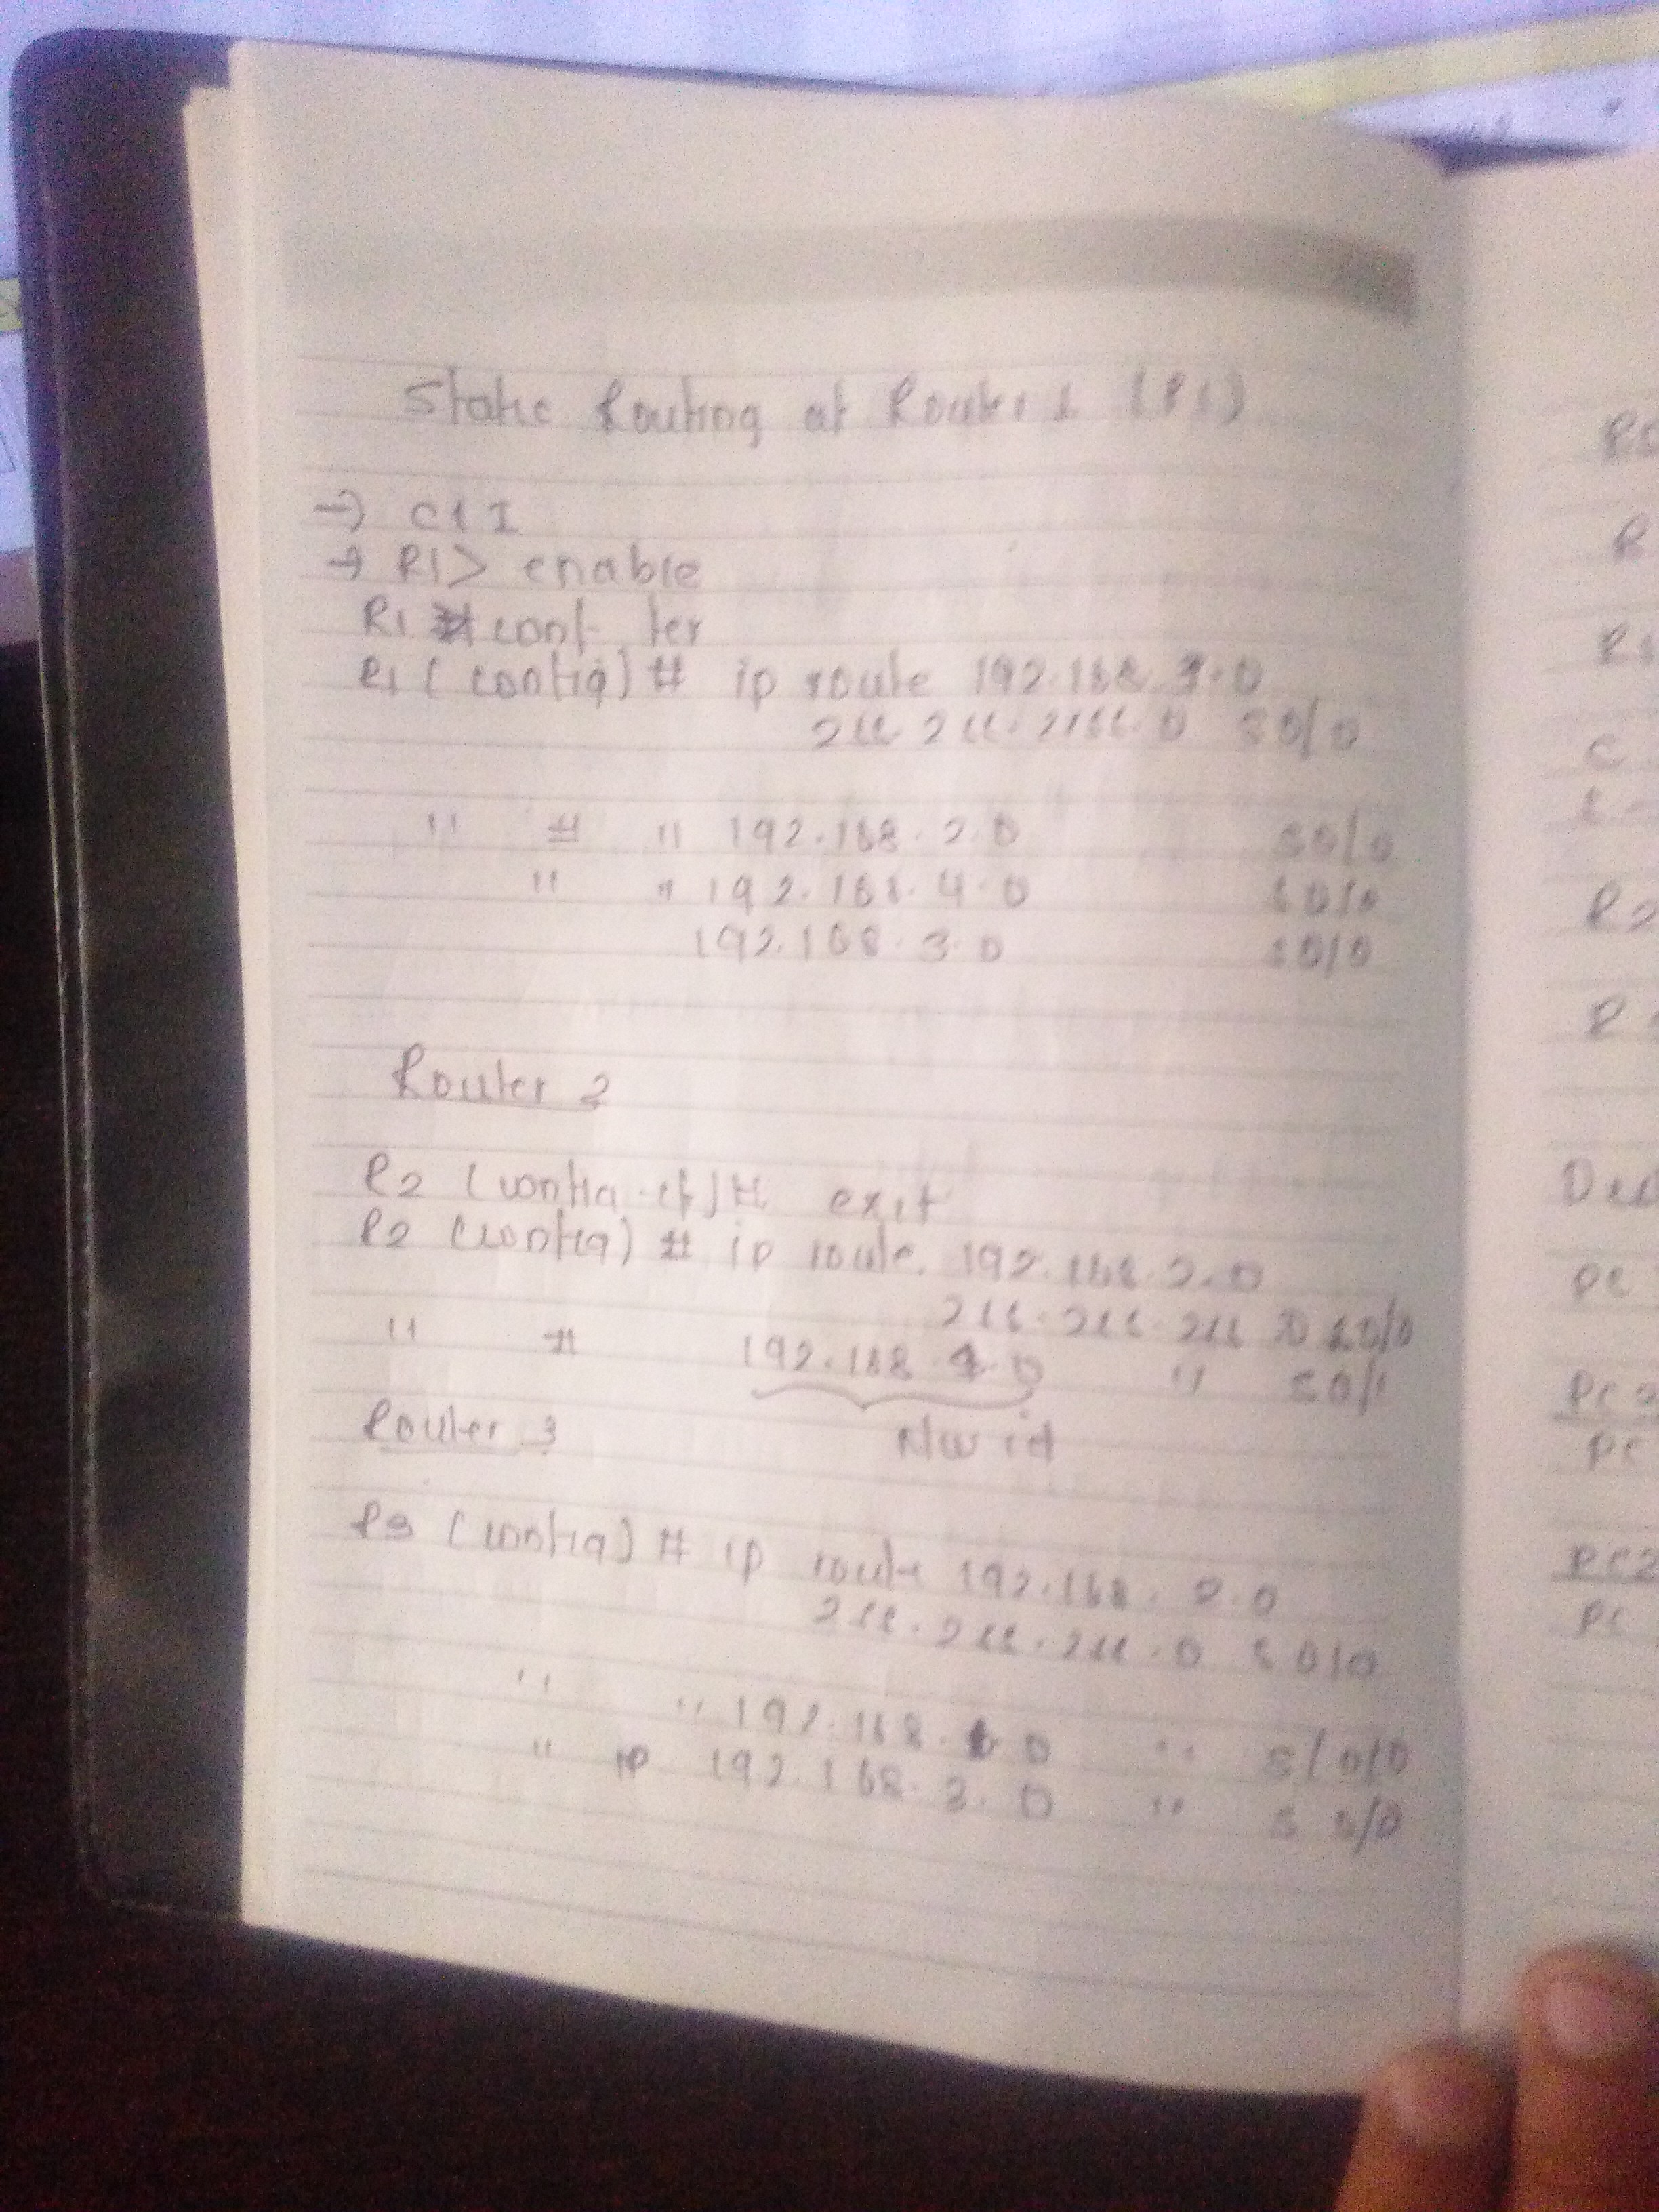 Static Routing at Router 1 (R1)
→ CLI
→ R1> enable
R1 # conf ter
R1 (config) # ip route 192.168.3.0
255.255.255.0 S0/0
" # " 192.168.2.0 S0/0
" " 192.168.4.0 S0/0
192.168.3.0 S0/0
Router 2
R2 (config-if)# exit
R2 (config) # ip route 192.168.2.0
255.255.255.0 S0/0
" # 192.168.4.0 " S0/1
Nw id
Router 3
R3 (config) # ip route 192.168.2.0
255.255.255.0 S0/0
" " 192.168. 0 " S/0/0
" ip 192.168.3.0 " S 0/0
R
R1
C
R2
R
PC
PC
PC2
PC